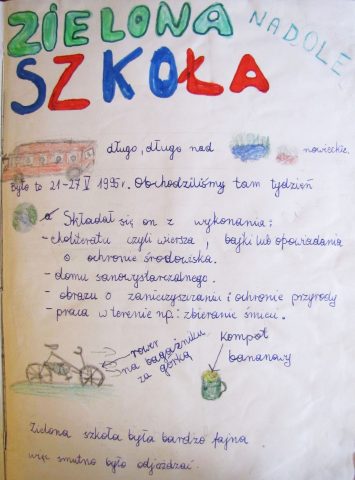 ZIELONA
NADOLE
SZKOŁA
długo, długo nad nowieckie.
Było to 21-27 V 1995r. Obchodziliśmy tam tydzień
Składał się on z wykonania:
- ekoliteratu czyli wiersza, bajki lub opowiadania
o ochronie środowiska.
- domu samowystarczalnego.
- obrazu o zanieczyszczaniu i ochronie przyrody
- praca w terenie np: zbieranie śmieci.
rower
na bagażniku
za górką
kompot
bananowy
Zielona szkoła była bardzo fajna
więc smutno było odjeżdżać.